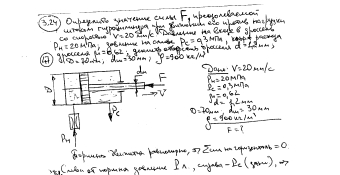 3.24 Определить значение силы F, преодолеваемой
штоком гидроцилиндра при движении его против нагрузки
со скоростью V=20 мм/с. Давление на входе в дроссель
Pн=20 МПа, давление на сливе Pс=0,3 МПа, коэф. расхода
дросселя μ=0,62, диаметр отверстия дросселя d=1,2 мм,
D=70 мм, dш=30 мм, ρ=900 кг/м³
dш
D
F
V
Pс
Pн
Дано: V=20 мм/с
Pн=20 МПа
Pс=0,3 МПа
μ=0,62
d=1,2 мм
D=70 мм, dш=30 мм
ρ=900 кг/м³
F=?
Поршень движется равномерно, ⇒ Σ сил на горизонталь =0
Слева от поршня давление Pл, справа – Pс (дано), ⇒